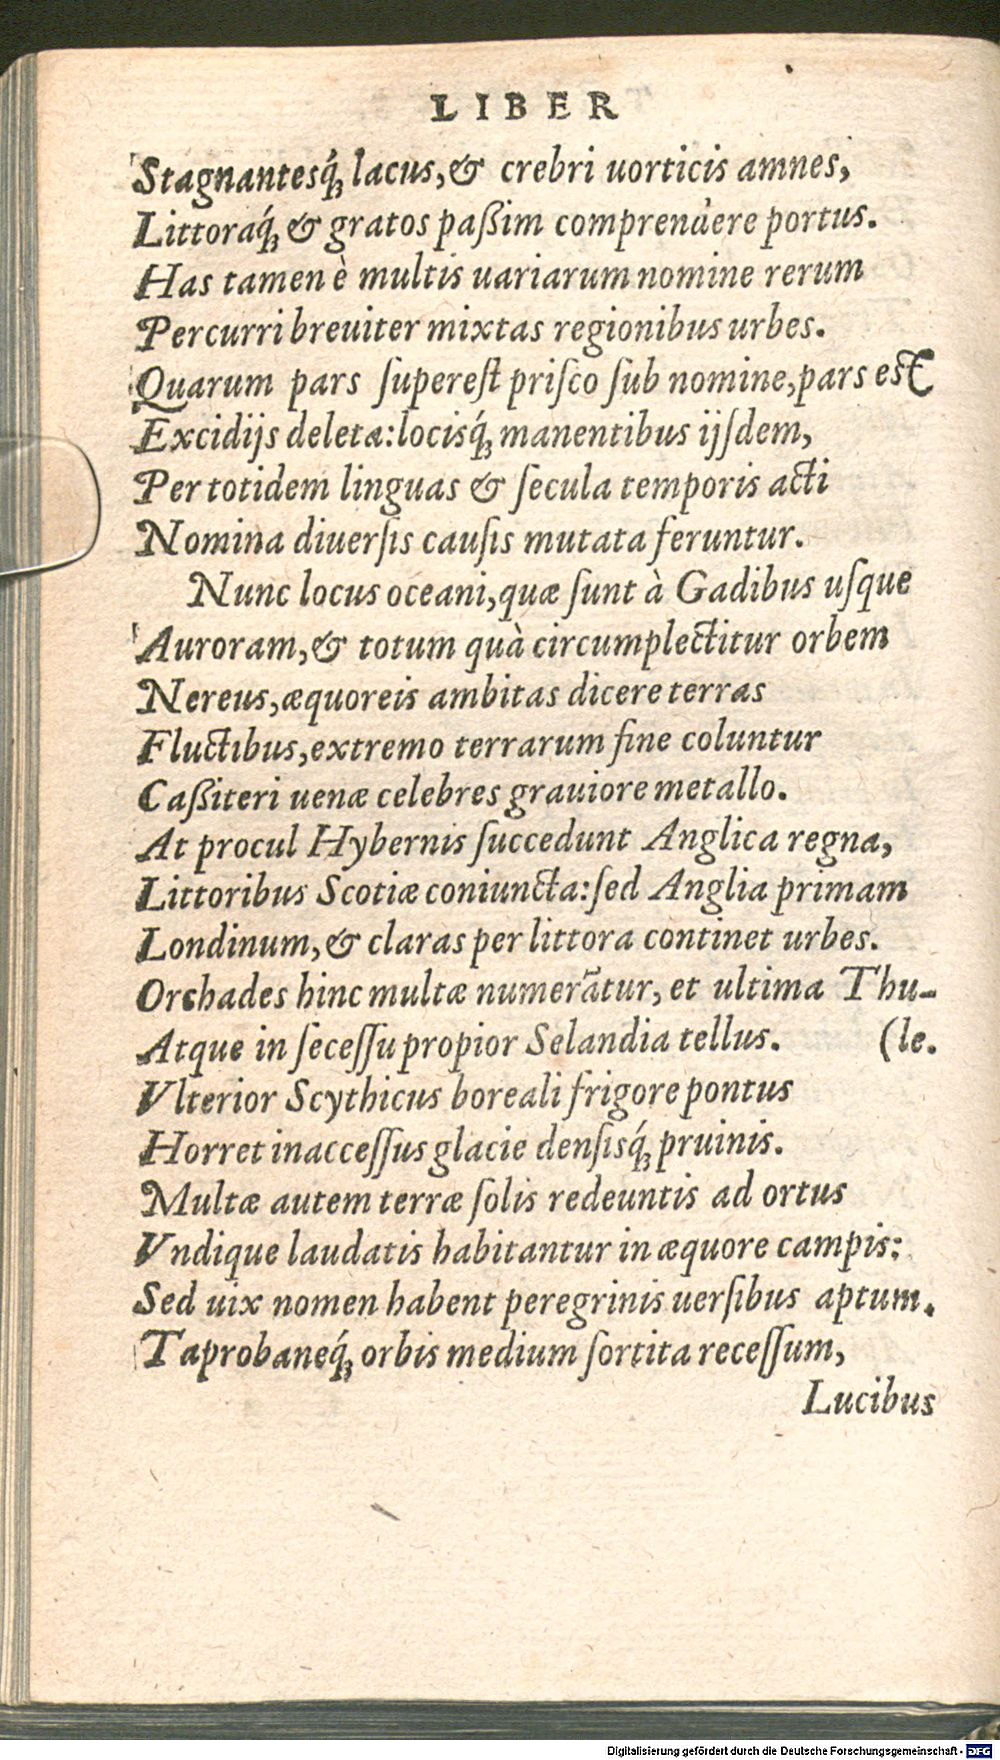 LIBER
Stagnantesq́; lacus, & crebri uorticis amnes,
Littoraq́; & gratos paßim comprendere portus.
Has tamen è multis uariarum nomine rerum
Percurri breuiter mixtas regionibus urbes.
Quarum pars ſupereſt priſco ſub nomine, pars est
Excidijs deleta: locisq́; manentibus ijſdem,
Per totidem linguas & ſecula temporis acti
Nomina diuerſis cauſis mutata feruntur.
Nunc locus oceani, quæ ſunt à Gadibus uſque
Auroram, & totum quà circumplectitur orbem
Nereus, æquoreis ambitas dicere terras
Fluctibus, extremo terrarum fine coluntur
Caßiteri uenæ celebres grauiore metallo.
At procul Hybernis ſuccedunt Anglica regna,
Littoribus Scotiæ coniuncta: ſed Anglia primam
Londinum, & claras per littora continet urbes.
Orchades hinc multæ numerãtur, et ultima Thu-
Atque in ſeceſſu propior Selandia tellus. (le.
Vlterior Scythicus boreali frigore pontus
Horret inacceſſus glacie denſisq́; pruinis.
Multæ autem terræ ſolis redeuntis ad ortus
Vndique laudatis habitantur in æquore campis:
Sed uix nomen habent peregrinis uerſibus aptum.
Taprobaneq́; orbis medium ſortita receſſum,
Lucibus
Digitalisierung gefördert durch die Deutsche Forschungsgemeinschaft - DFG